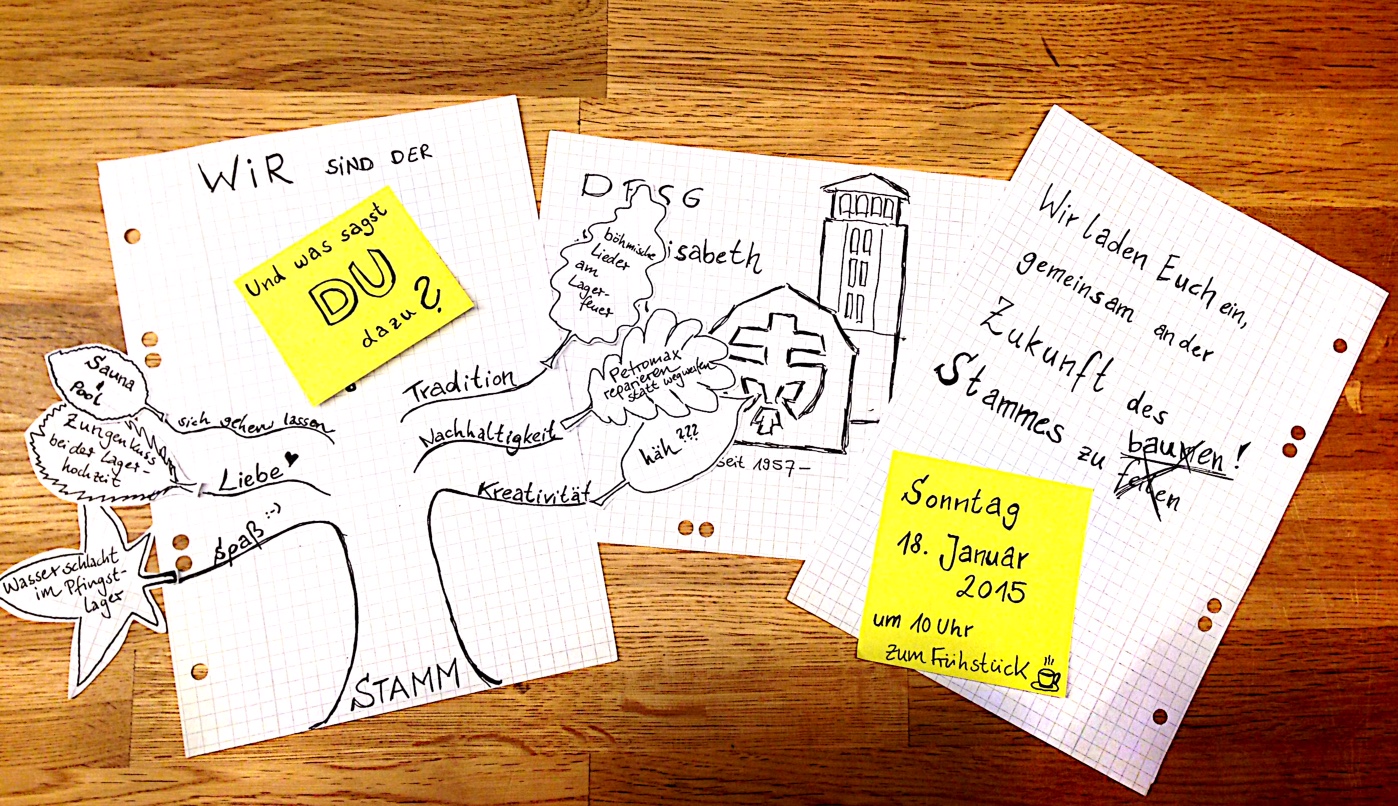 WiR SiND DER
Und was sagst
DU
dazu?
Sauna
Pool
sich gehen lassen
Zungenkuss
bei der Lager-
hochzeit
Liebe
Wasserschlacht
im Pfingst-
lager
Spaß :-)
Tradition
böhmische
Lieder
am
Lager-
feuer
Nachhaltigkeit
Petromax
reparieren
statt wegwerfen
Kreativität
häh???
STAMM
DPSG
isabeth
seit 1957-
Wir laden Euch ein,
gemeinsam an der
Zukunft des
Stammes zu bauen!
Sonntag
18. Januar
2015
um 10 Uhr
zum Frühstück